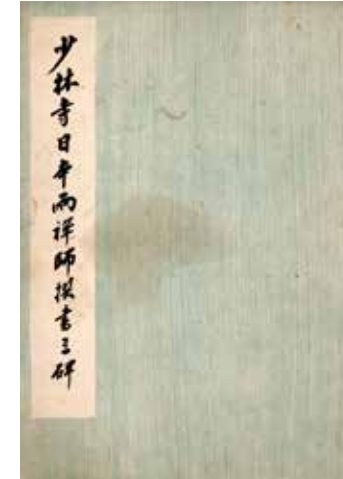 少林寺日本两禅師撰書三碑